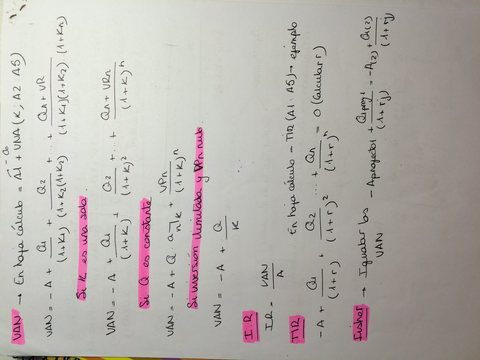 VAN → En hoja cálculo = A1 + VNA (K, A2 : A5)
VAN = -A + Q1/(1+K1) + Q2/(1+K1)(1+K2) + ... + Qn + VR/(1+K1)(1+K2)(1+Kn)
Si K es una sola.
VAN = -A + Q1/(1+K) + Q2/(1+K)² + ... + Qn + VRn/(1+K)ⁿ
Si Q es constante
VAN = -A + Q a n¬K + VRn/(1+K)ⁿ
Si inversión ilimitada y VRn nulo
VAN = -A + Q/K
I.R
IR = VAN/A
TIR En hoja cálculo - TIR (A1 : A5) → ejemplo
-A + Q1/(1+r) + Q2/(1+r)² ... + Qn/(1+r)ⁿ = 0 (Calcular r)
Fisher → Igualar los VAN - Aproyecto1 + Q1proy1/(1+rj) = -A(2) + Q1(2)/(1+rj)